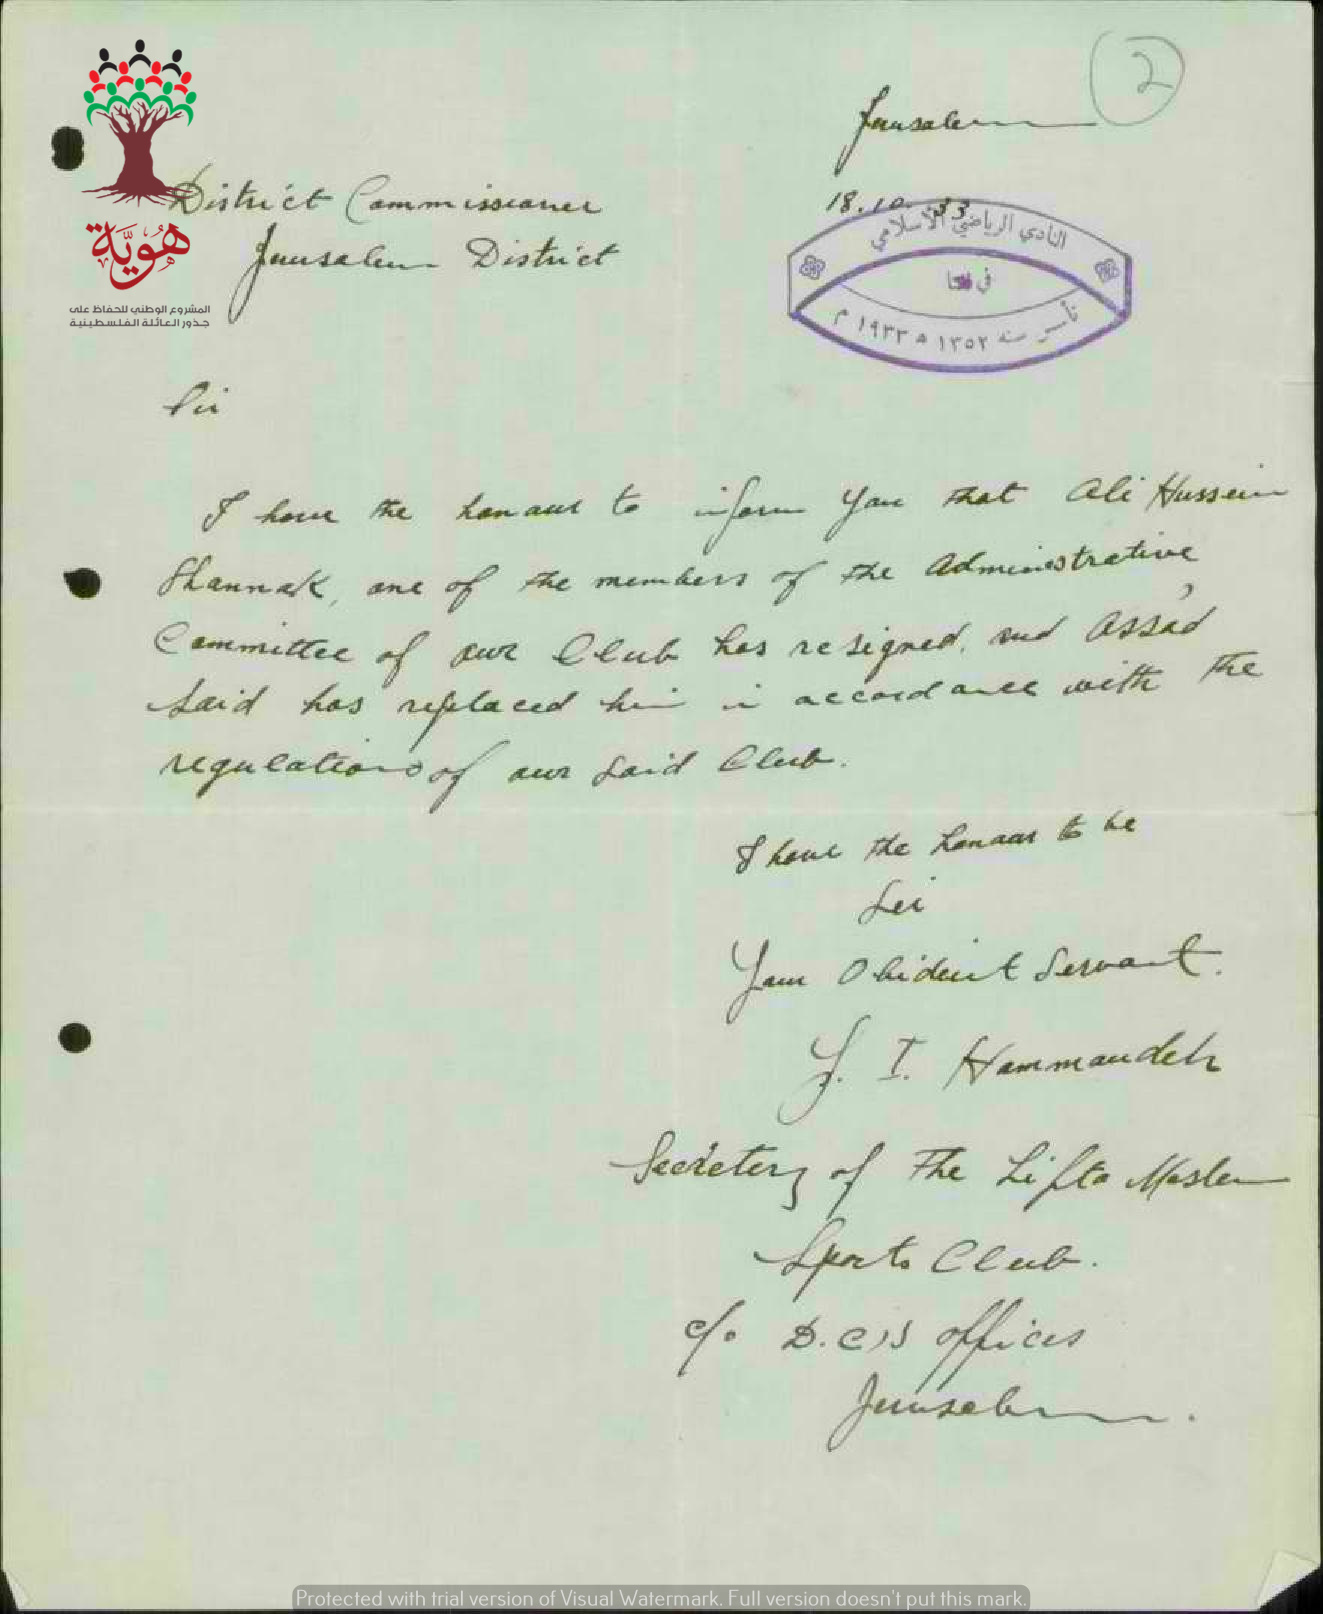 2
Jerusalem
18.10.33
District Commissioner
Jerusalem District
هُوِيَّة
المشروع الوطني للحفاظ على
جذور العائلة الفلسطينية
النادي الرياضي الاسلامي
في
تأسس سنه ١٣٥٢ ه ١٩٣٣ م
Sir
I have the honour to inform you that Ali Hussein
Shannak, one of the members of the Administrative
Committee of our Club has resigned, and Assad
Said has replaced him in accordance with the
regulations of our said Club.
I have the honour to be
Sir
Your Obidient Servant.
Y. I. Hammoudeh
Secretery of The Lifta Moslem
Sports Club.
c/o D.C's offices
Jerusalem.
Protected with trial version of Visual Watermark. Full version doesn't put this mark.